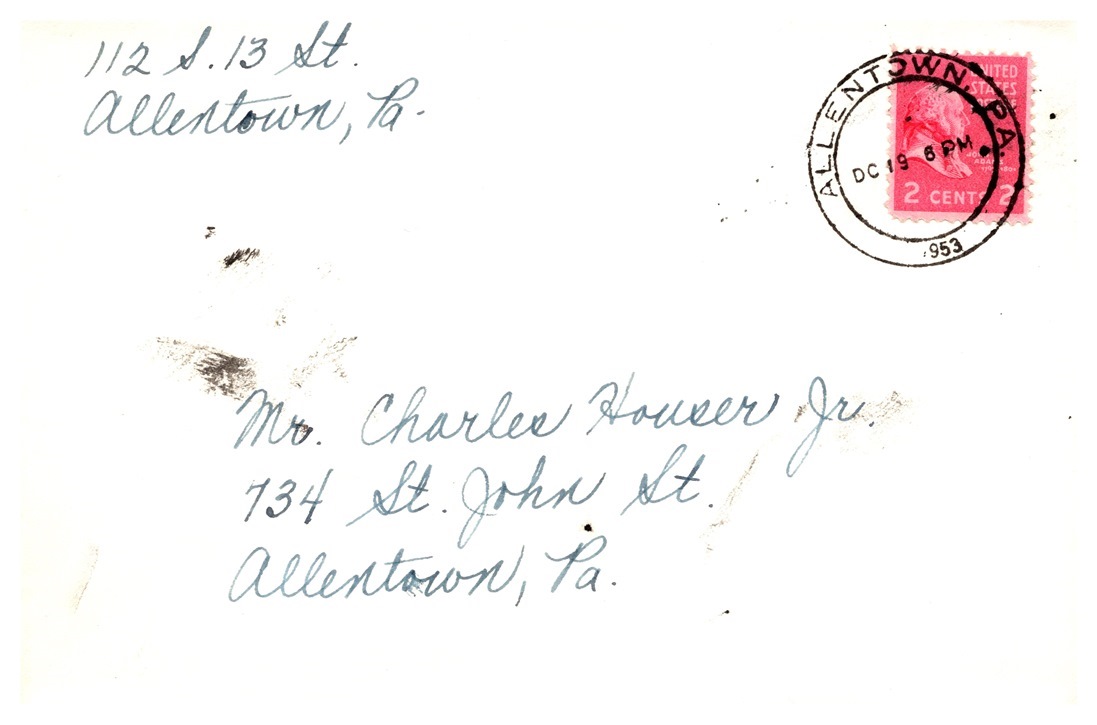 112 S. 13 St.
Allentown, Pa.
ALLENTOWN, PA.
DC 19 6 PM
1953
UNITED
STATES
JOHN
ADAMS
2 CENTS 2
Mr. Charles Houser Jr.
734 St. John St.
Allentown, Pa.